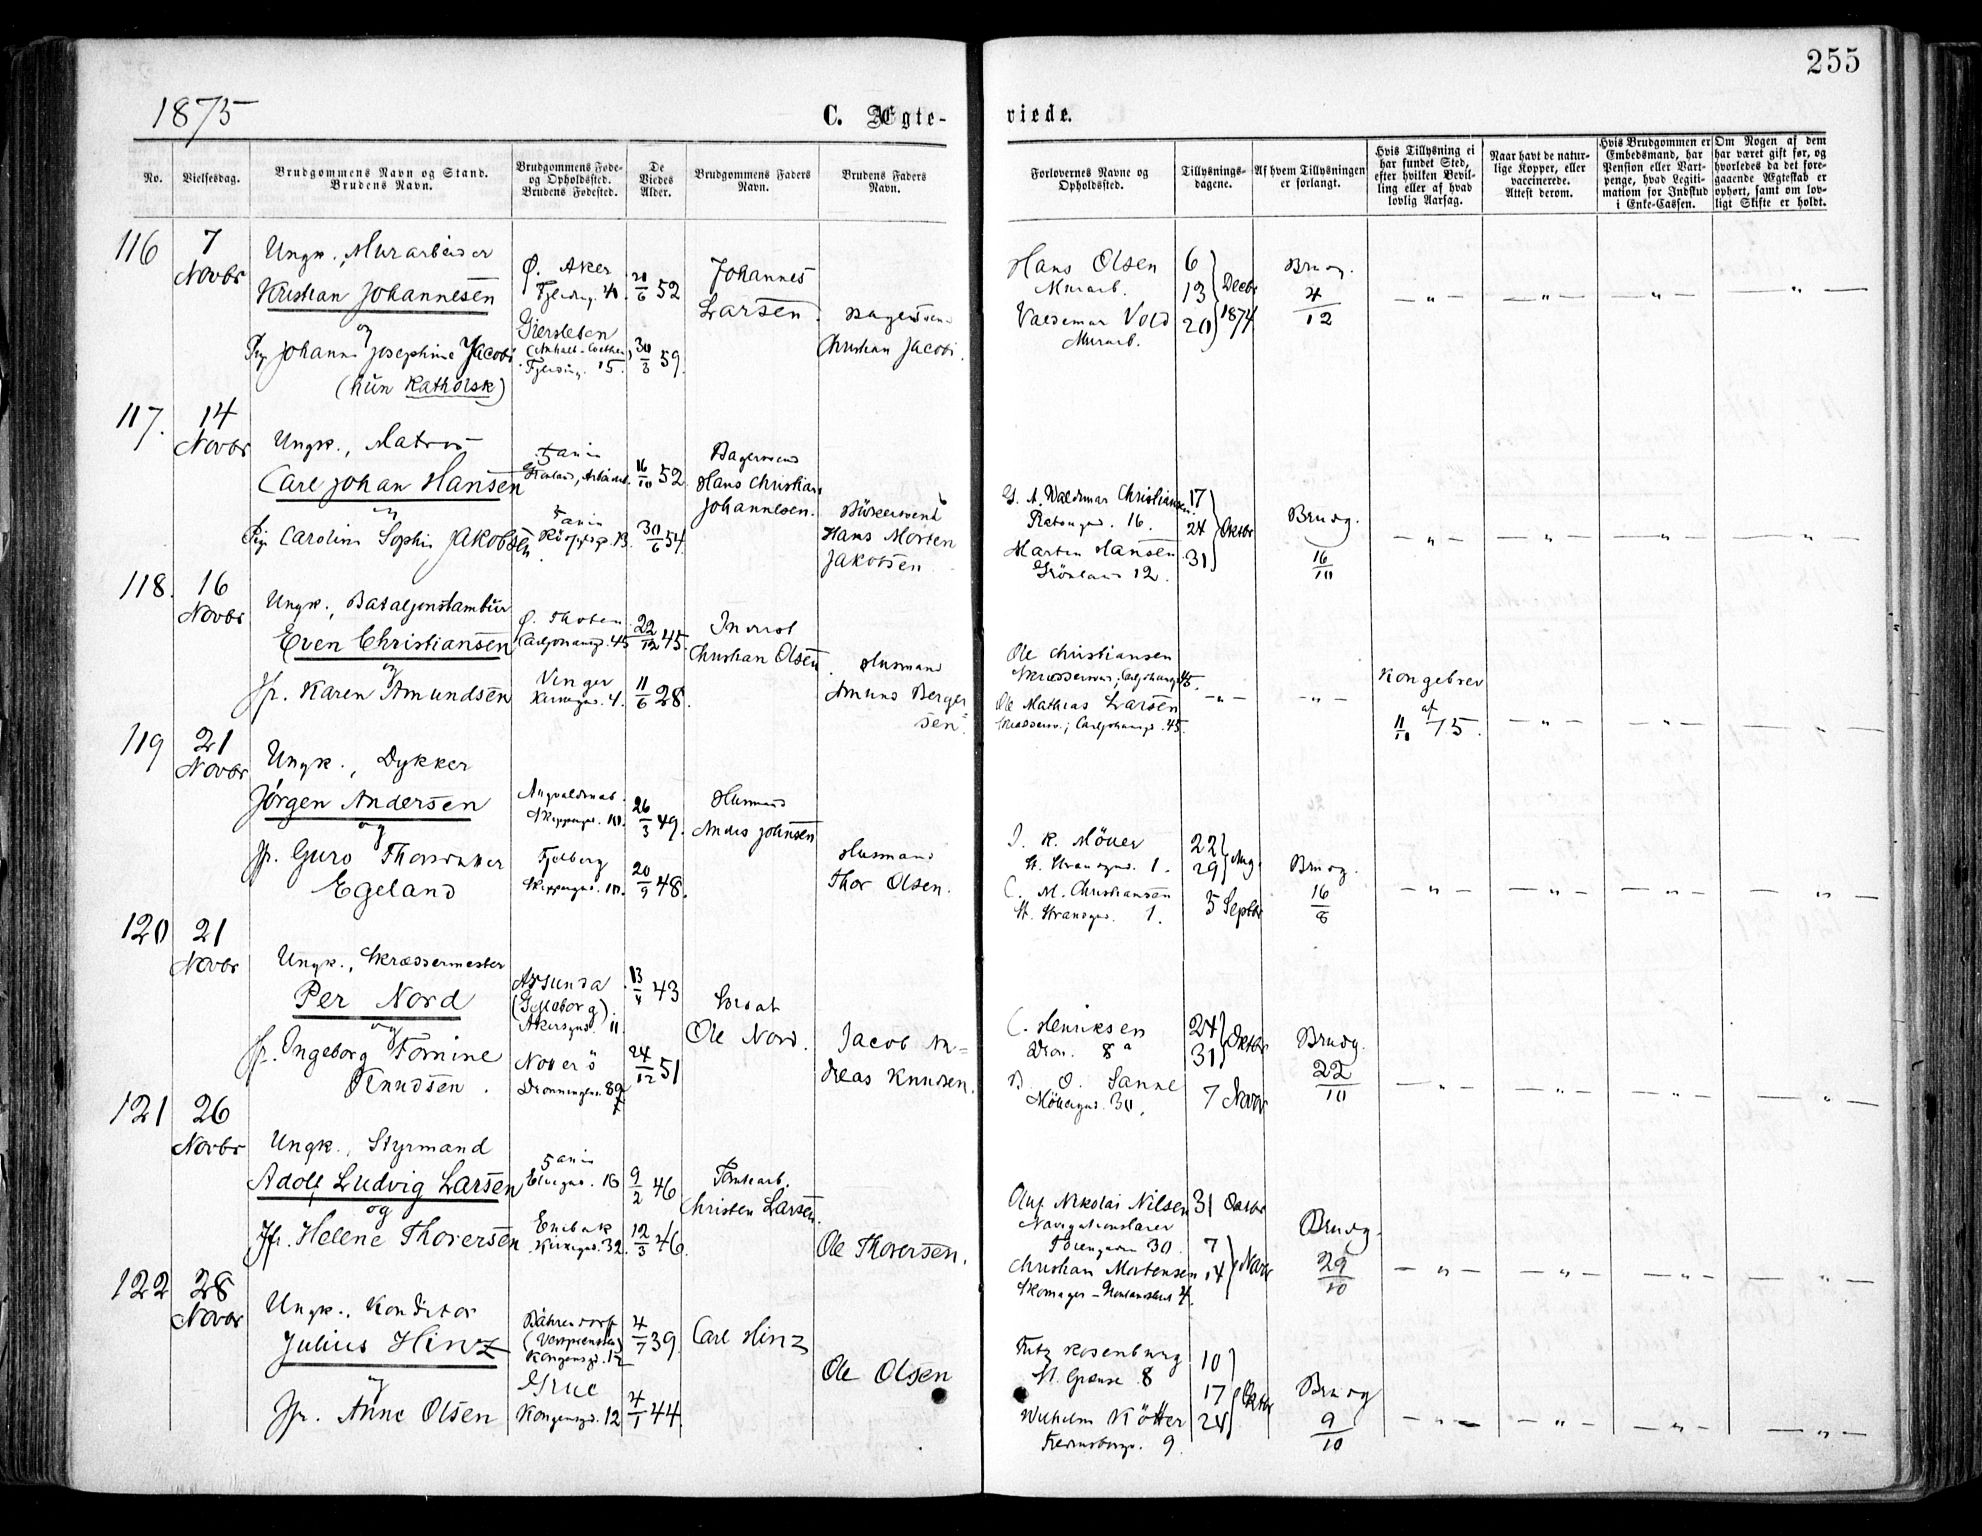 255
1875
C. Ægte-
viede.
No.
Vielsesdag.
Brudgommens Navn og Stand.
Brudens Navn.
Brudgommens Føde-
og Opholdssted.
Brudens Fødested.
De
Viedes
Alder.
Brudgommens Faders
Navn.
Brudens Faders
Navn.
Forlovernes Navne og
Opholdssted.
Tillysnings-
dagene.
Af hvem Tillysningen
er forlangt.
Hvis Tillysning ei
har fundet Sted,
efter hvilken Bevil-
ling eller af hvad
lovlig Aarsag.
Naar havt de natur-
lige Kopper, eller
vaccinerede.
Attest derom.
Hvis Brudgommen er
Embedsmand, har
Pension eller Vart-
penge, hvad Legiti-
mation for Indskud
i Enke-Cassen.
Om Nogen af dem
har været gift før, og
hvorledes da det fore-
gaaende Ægteskab er
ophørt, samt om lov-
ligt Skifte er holdt.
116
7
Novbr
Ungk., Murarbeider
Kristian Johannesen
og
Pig. Johanne Josephine Jacobi
(hun Katholsk)
Ø. Aker
Fjerding. 40.
Giersleben
(Anhalt-Coethen)
Fjerding. 15.
20/6 52
30/3 59.
Johannes
Larsen.
Christian Jacobi.
Hans Olsen
Murarb.
Valdemar Vold
Murarb.
6
13
20
Decbr
1874
Brudg.
4/12
117.
14
Novbr
Ungk., Matros
Carl Johan Hansen
og
Pig. Caroline Sophie Jakobsen
16/10 52
30/6 54.
Bagersvend
Hans Christian
Johannesen.
Bödkersvend
Hans Morten
Jakobsen
G. A. Waldemar Christiansen.
16.
Martin Hansen
Grönland 12.
17
24
31
Oktbr
Brudg.
16/10
118.
16
Novbr
Ungk., Bataljonstambur
Even Christiansen
og
Jfr. Karen Amundsen
Ø. Thoten
Carljohansg. 45
Vinger
Kirkegd. 4.
22/12 45.
11/6 28.
Inderst
Christian Olsen
Husmand
Amund Berger
sen.
Ole Christiansen
Skræddersv.; Carljohansgd 45.
Ole Mathias Larsen
Skræddersv.; Carljohansgd. 45.
Kongebrev
af
11/11 75.
119
21
Novbr
Ungk., Dykker
Jörgen Andersen
og
Jfr. Guro Thorsdatter
Egeland
Skippergd. 10.
Fjelberg
Skippergd. 10.
26/3 49.
20/9 48.
Husmand
Anders Johnsen
Husmand
Thor Olsen.
J. K. Möller
St. Strandgd. 1.
C. M. Christiansen
St. Strandgd. 1.
22
29
Aug.
5 Septbr
Brudg.
16/8
120
21
Novbr
Ungk., Skræddermester
Per Nord
og
Jfr. Ingeborg Tomine
Knudsen.
Årsunda
(Gefleborg).
Akersgd. 11.
Notterö
13/4 43
24/12 51
Soldat
Ole Nord.
Jacob An=
dreas Knudsen.
C. Henriksen
Dron. 8 a
B. O. Sanne
Möllergd. 30.
24
31
Oktbr
7 Novbr
Brudg.
22/10
121
26
Novbr
Ungk., Styrmand
Adolf Ludvig Larsen
og
Jfr. Helene Thoresen
Elvegd. 16
Enebak
Kirkegd. 32.
9/2 46
12/3 46.
Tomtearb.
Christen Larsen.
Ole Thoresen.
Oluf Nikolai Nilsen
Navigationslærer
30.
Christian Mortensen
Skomager - Grönlandsleret 4.
31 Octbr
7
14
Novbr
Brudg.
29/10
122
28
Novbr
Ungk., Konditor
Julius Hinz
og
Jfr. Anne Olsen
Bährendorff
(Vestpreussen)
Kongensgd. 12
Grue
Kongensgd. 12
4/7 39
4/1 44.
Carl Hinz
Ole Olsen
Fritz Rosenburg
St. Grænse 8
Wilhelm Kötter
9.
10
17
24
Oktbr
Brudg
9/10